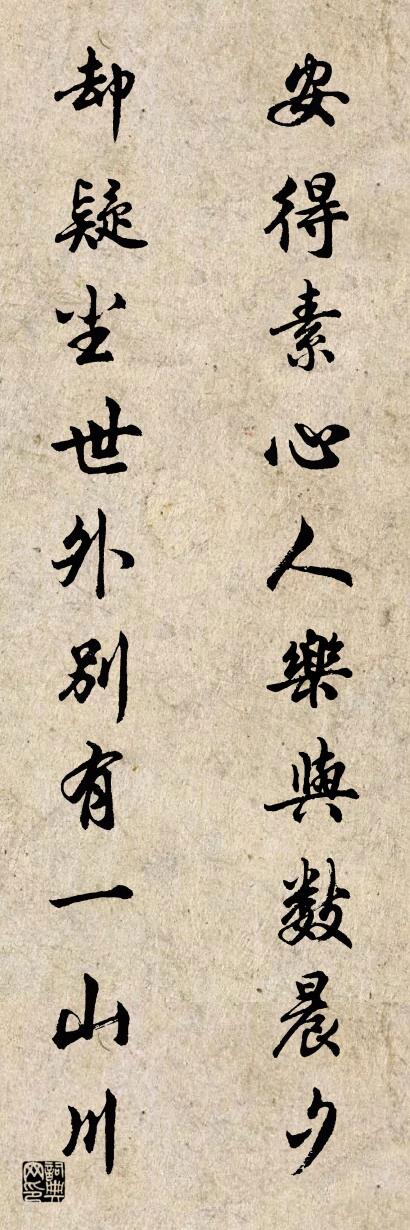 安得素心人樂與數晨夕
却疑尘世外別有一山川
詞典网印